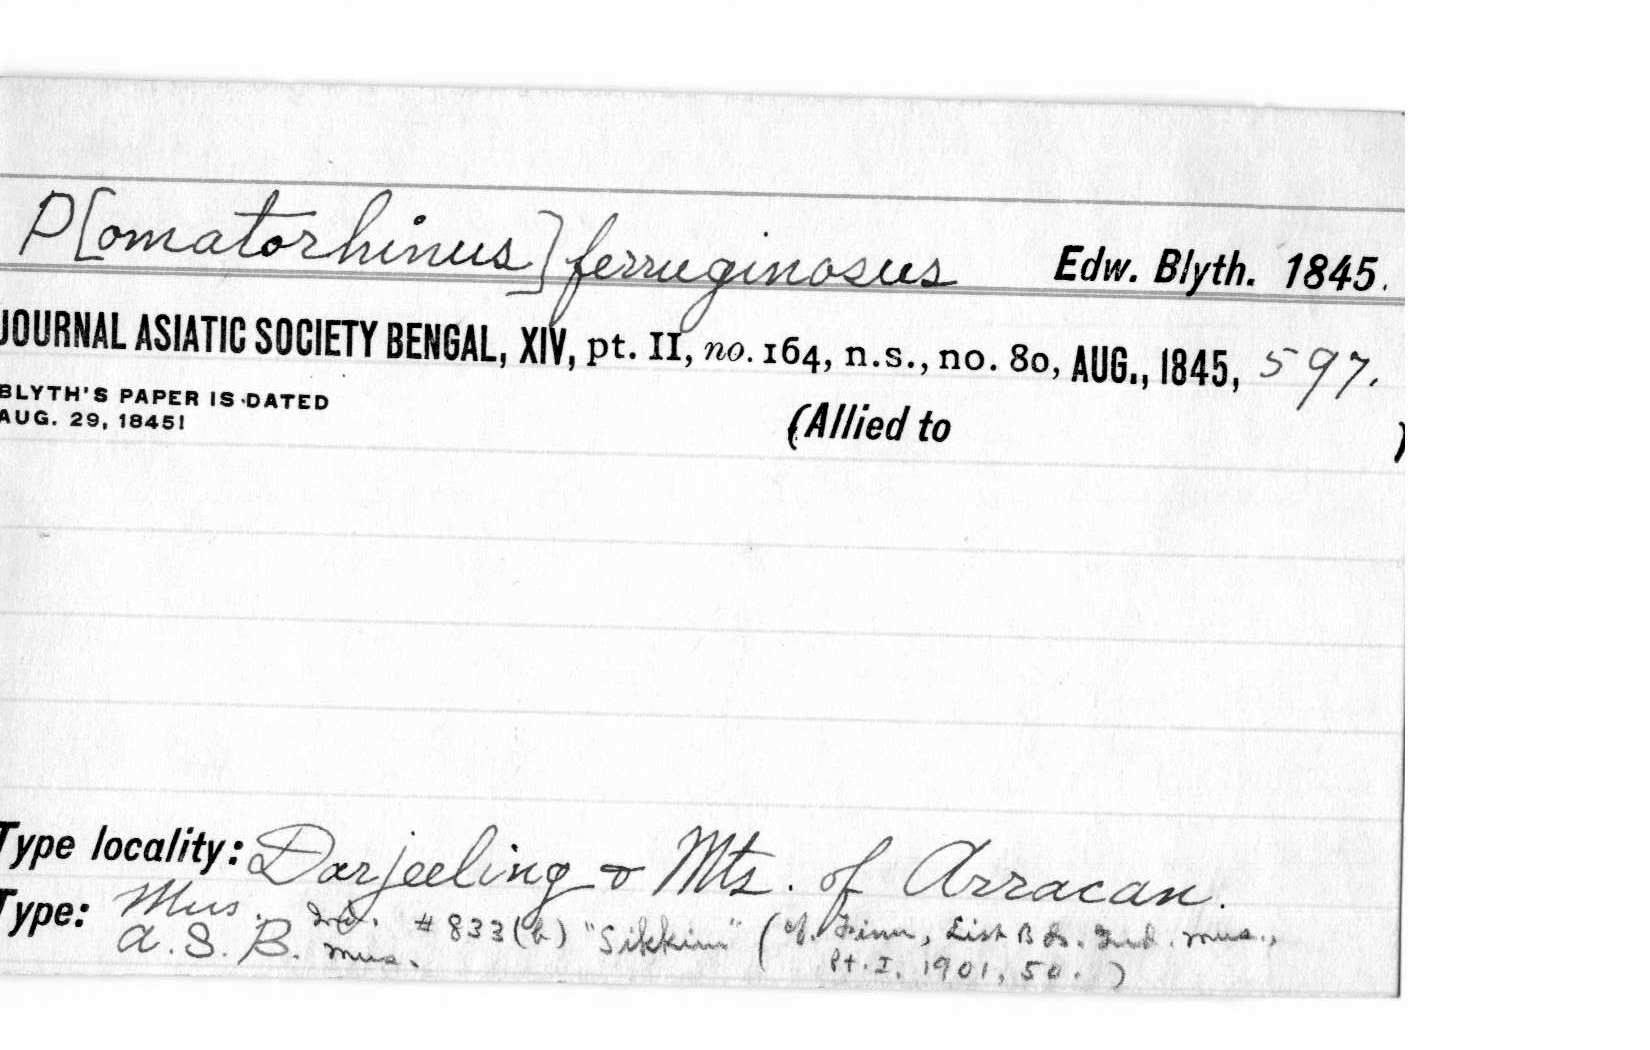 P[omatorhinus] ferruginosus Edw. Blyth. 1845.
JOURNAL ASIATIC SOCIETY BENGAL, XIV, pt. II, no. 164, n.s., no. 80, AUG., 1845, 597.
BLYTH'S PAPER IS DATED
AUG. 29, 1845!
(Allied to )
Type locality: Darjeeling & Mts. of Arracan.
Type: Mus. Ind. # 833(b) "Sikkim" (cf. Finn, List Bds. Ind. Mus.,
A.S.B. Mus. Pt. I, 1901, 50.)